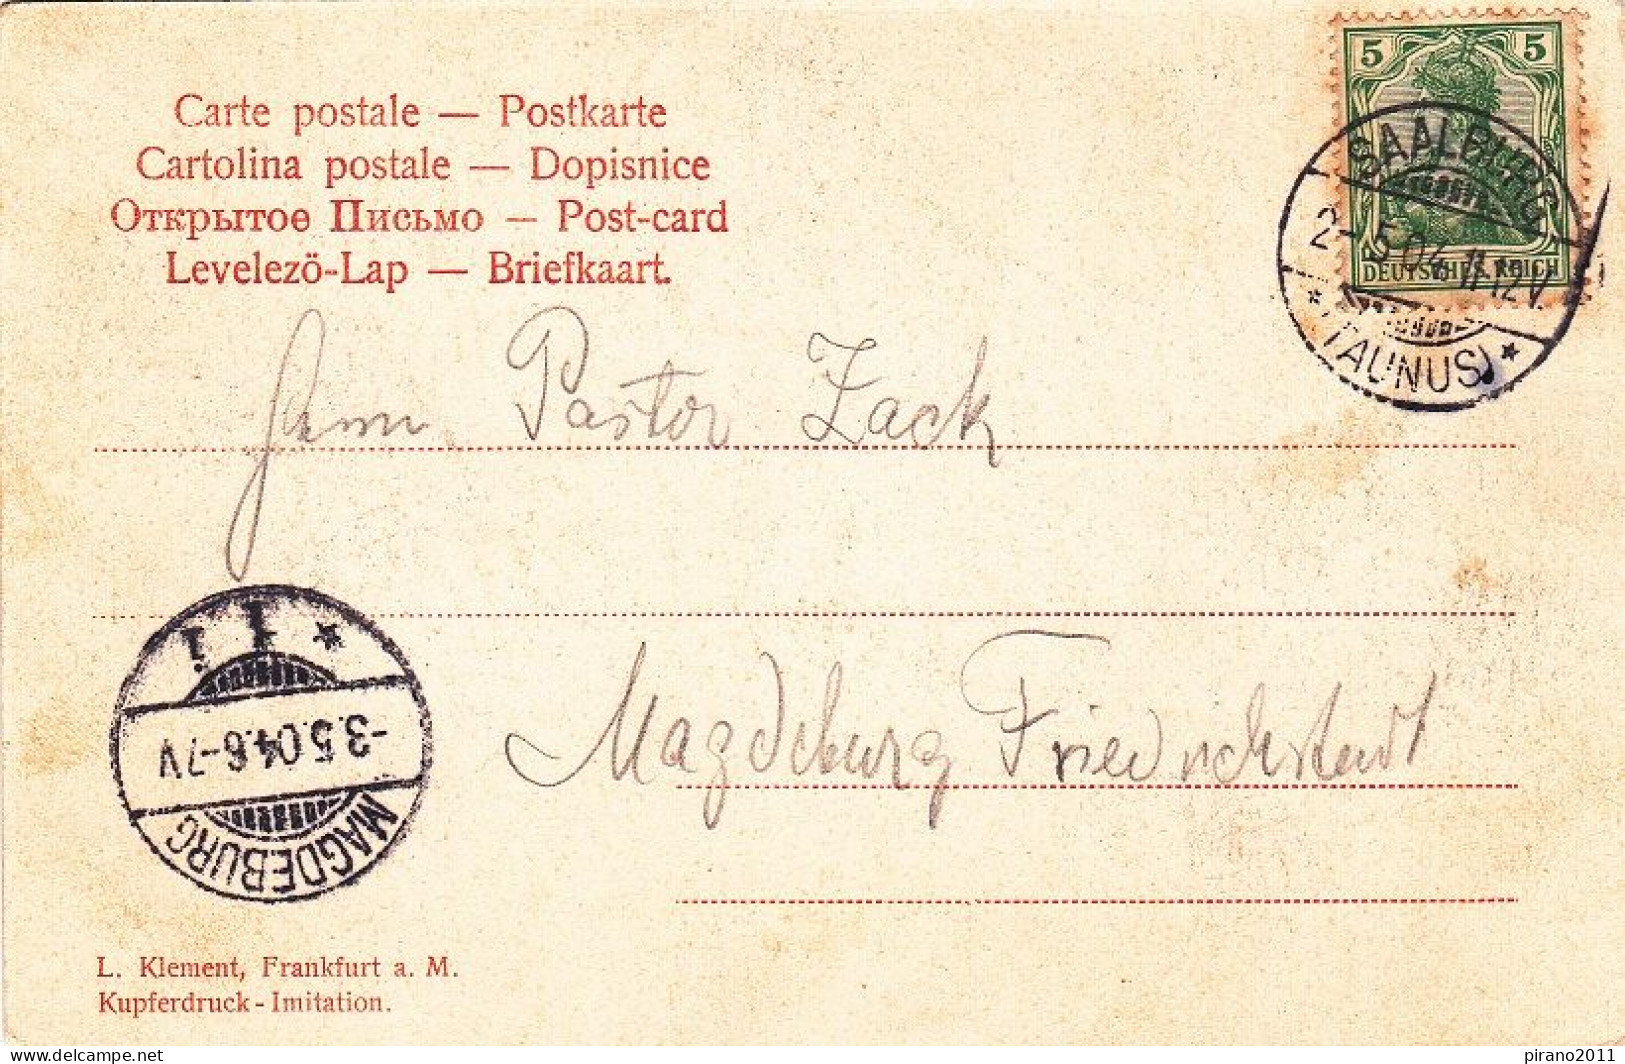 Carte postale — Postkarte
Cartolina postale — Dopisnice
Открытое Письмо — Post-card
Levelező-Lap — Briefkaart.
5 5
DEUTSCHES REICH
SAALBURG
2-5.04.11-12V.
* (TAUNUS) *
Herrn Pastor Zack
Magdeburg Friedrichstadt
* 1 1
-3.5.04.6-7V
MAGDEBURG
L. Klement, Frankfurt a. M.
Kupferdruck-Imitation.
delcampe.net
pirano2011